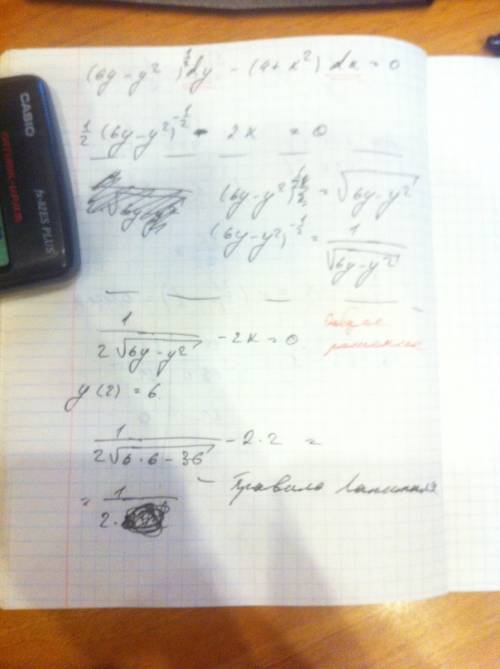 (6y - y²)^{1/2} dy - (4 + x²) dx = 0
1/2 (6y - y²)^{-1/2} - 2x = 0
(6y - y²)^{1/2} = √(6y - y²)
(6y - y²)^{-1/2} = 1/√(6y - y²)
1/(2√(6y - y²)) - 2x = 0 Общее решение
y(2) = 6
1/(2√(6·6 - 36)) - 2·2 =
= 1/(2· - Правило Лопиталя
CASIO
fx-82ES PLUS